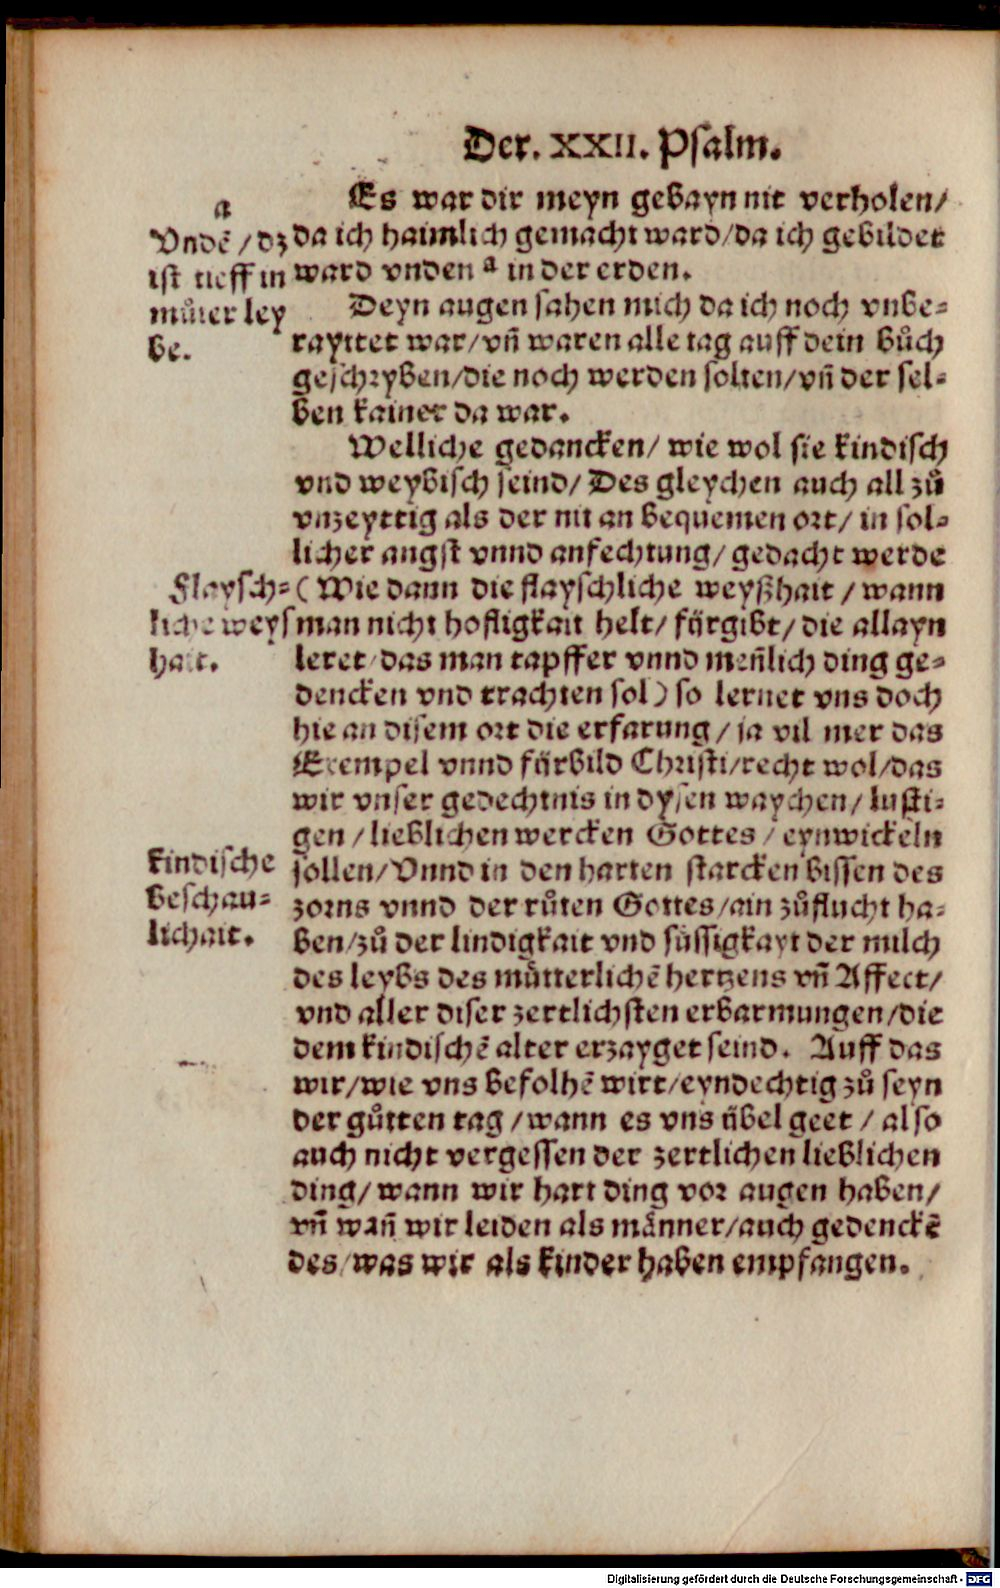 Der. XXII. Psalm.
Es war dir meyn gebayn nit verholen/
da ich haimlich gemacht ward/da ich gebildet
ward vnden a in der erden.
a
Vndē / dz
ist tieff in
můter ley
be.
Deyn augen sahen mich da ich noch vnbe-
rayttet war/vn̄ waren alle tag auff dein bůch
geschryben/die noch werden solten/vn̄ der sel-
ben kainer da war.
Welliche gedancken/ wie wol sie kindisch
vnd weybisch seind/ Des gleychen auch all zů
vnzeyttig als der nit an bequemen ort/ in sol-
licher angst vnnd anfechtung/ gedacht werde
(Wie dann die flayschliche weyßhait / wann
man nicht hofligkait helt/ fürgibt/ die allayn
leret/das man tapffer vnnd men̄lich ding ge-
dencken vnd trachten sol) so lernet vns doch
hie an disem ort die erfarung/ ja vil mer das
Exempel vnnd fürbild Christi/recht wol/das
wir vnser gedechtnis in dysen waychen/ lusti-
gen/lieblichen wercken Gottes / eynwickeln
sollen/Vnnd in den harten starcken bissen des
zorns vnnd der růten Gottes/ain zůflucht ha-
ben/zů der lindigkait vnd süssigkayt der milch
des leybs des mütterlichē hertzens vn̄ Affect/
vnd aller diser zertlichsten erbarmungen/die
dem kindischē alter erzayget seind. Auff das
wir/wie vns befolhē wirt/eyndechtig zů seyn
der gůtten tag/wann es vns übel geet / also
auch nicht vergessen der zertlichen lieblichen
ding/ wann wir hart ding vor augen haben/
vn̄ wan̄ wir leiden als männer/auch gedenckē
des/was wir als kinder haben empfangen.
Flaysch-
liche weys
hait.
kindische
beschau-
lichait.
Digitalisierung gefördert durch die Deutsche Forschungsgemeinschaft - DFG